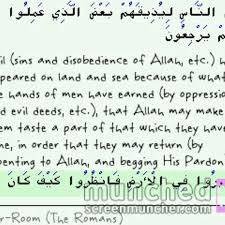 النَّاسِ لِيُذِيقَهُمْ بَعْضَ الَّذِي عَمِلُوا
يَرْجِعُونَ
il (sins and disobedience of Allah, etc.) h
peared on land and sea because of what
hands of men have earned (by oppressio
d evil deeds, etc.), that Allah may make
em taste a part of that which they have
ne, in order that they may return (by
penting to Allah, and begging His Pardon
فِي الْأَرْضِ فَانْظُرُوا كَيْفَ كَانَ
munched
screenmuncher.com
r-Room (The Romans)